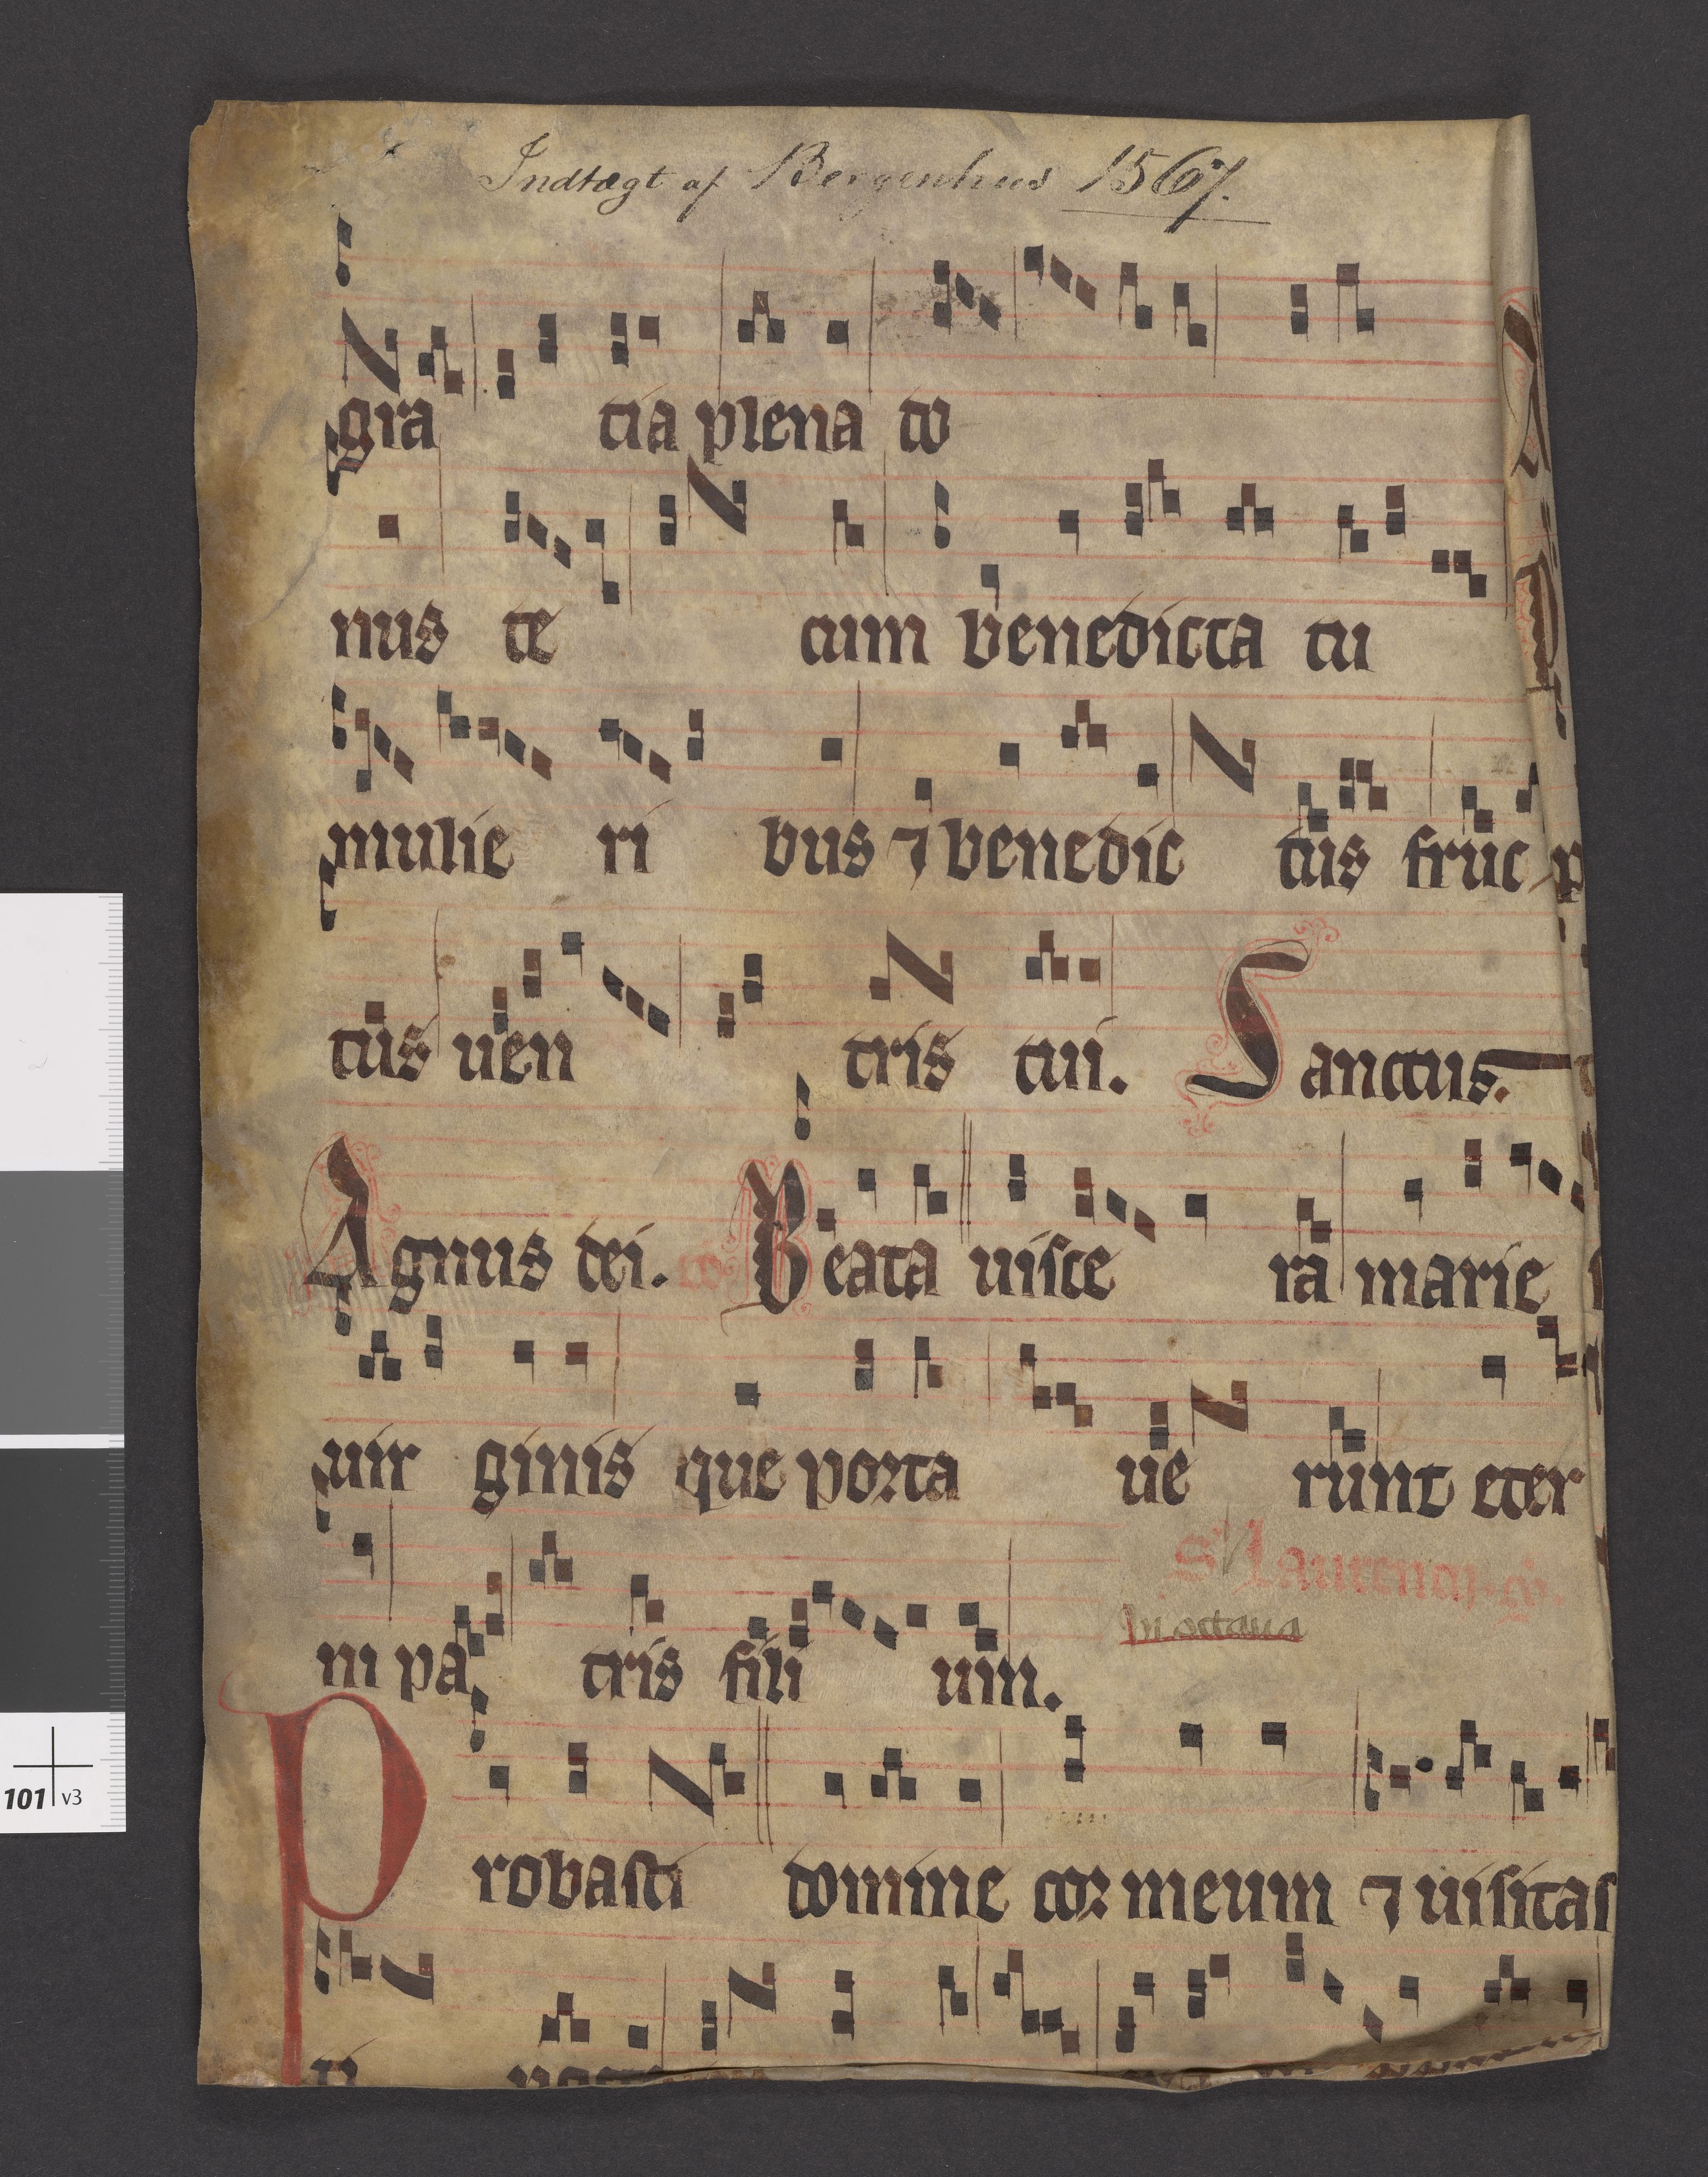 Indtægt af Bergenhus 1567.
gra tia plena do
nus te cum benedicta tu
mulie ri bus ⁊ benedic tus fruc
tus uen tris tui. Sanctus.
Agnus dei. co Beata uisce ra marie
uir ginis que porta ue runt eter
ni pa tris fili um.
S' laurencij.
In octaua
Probasti domine cor meum ⁊ uisitas
ti noc
101 v3